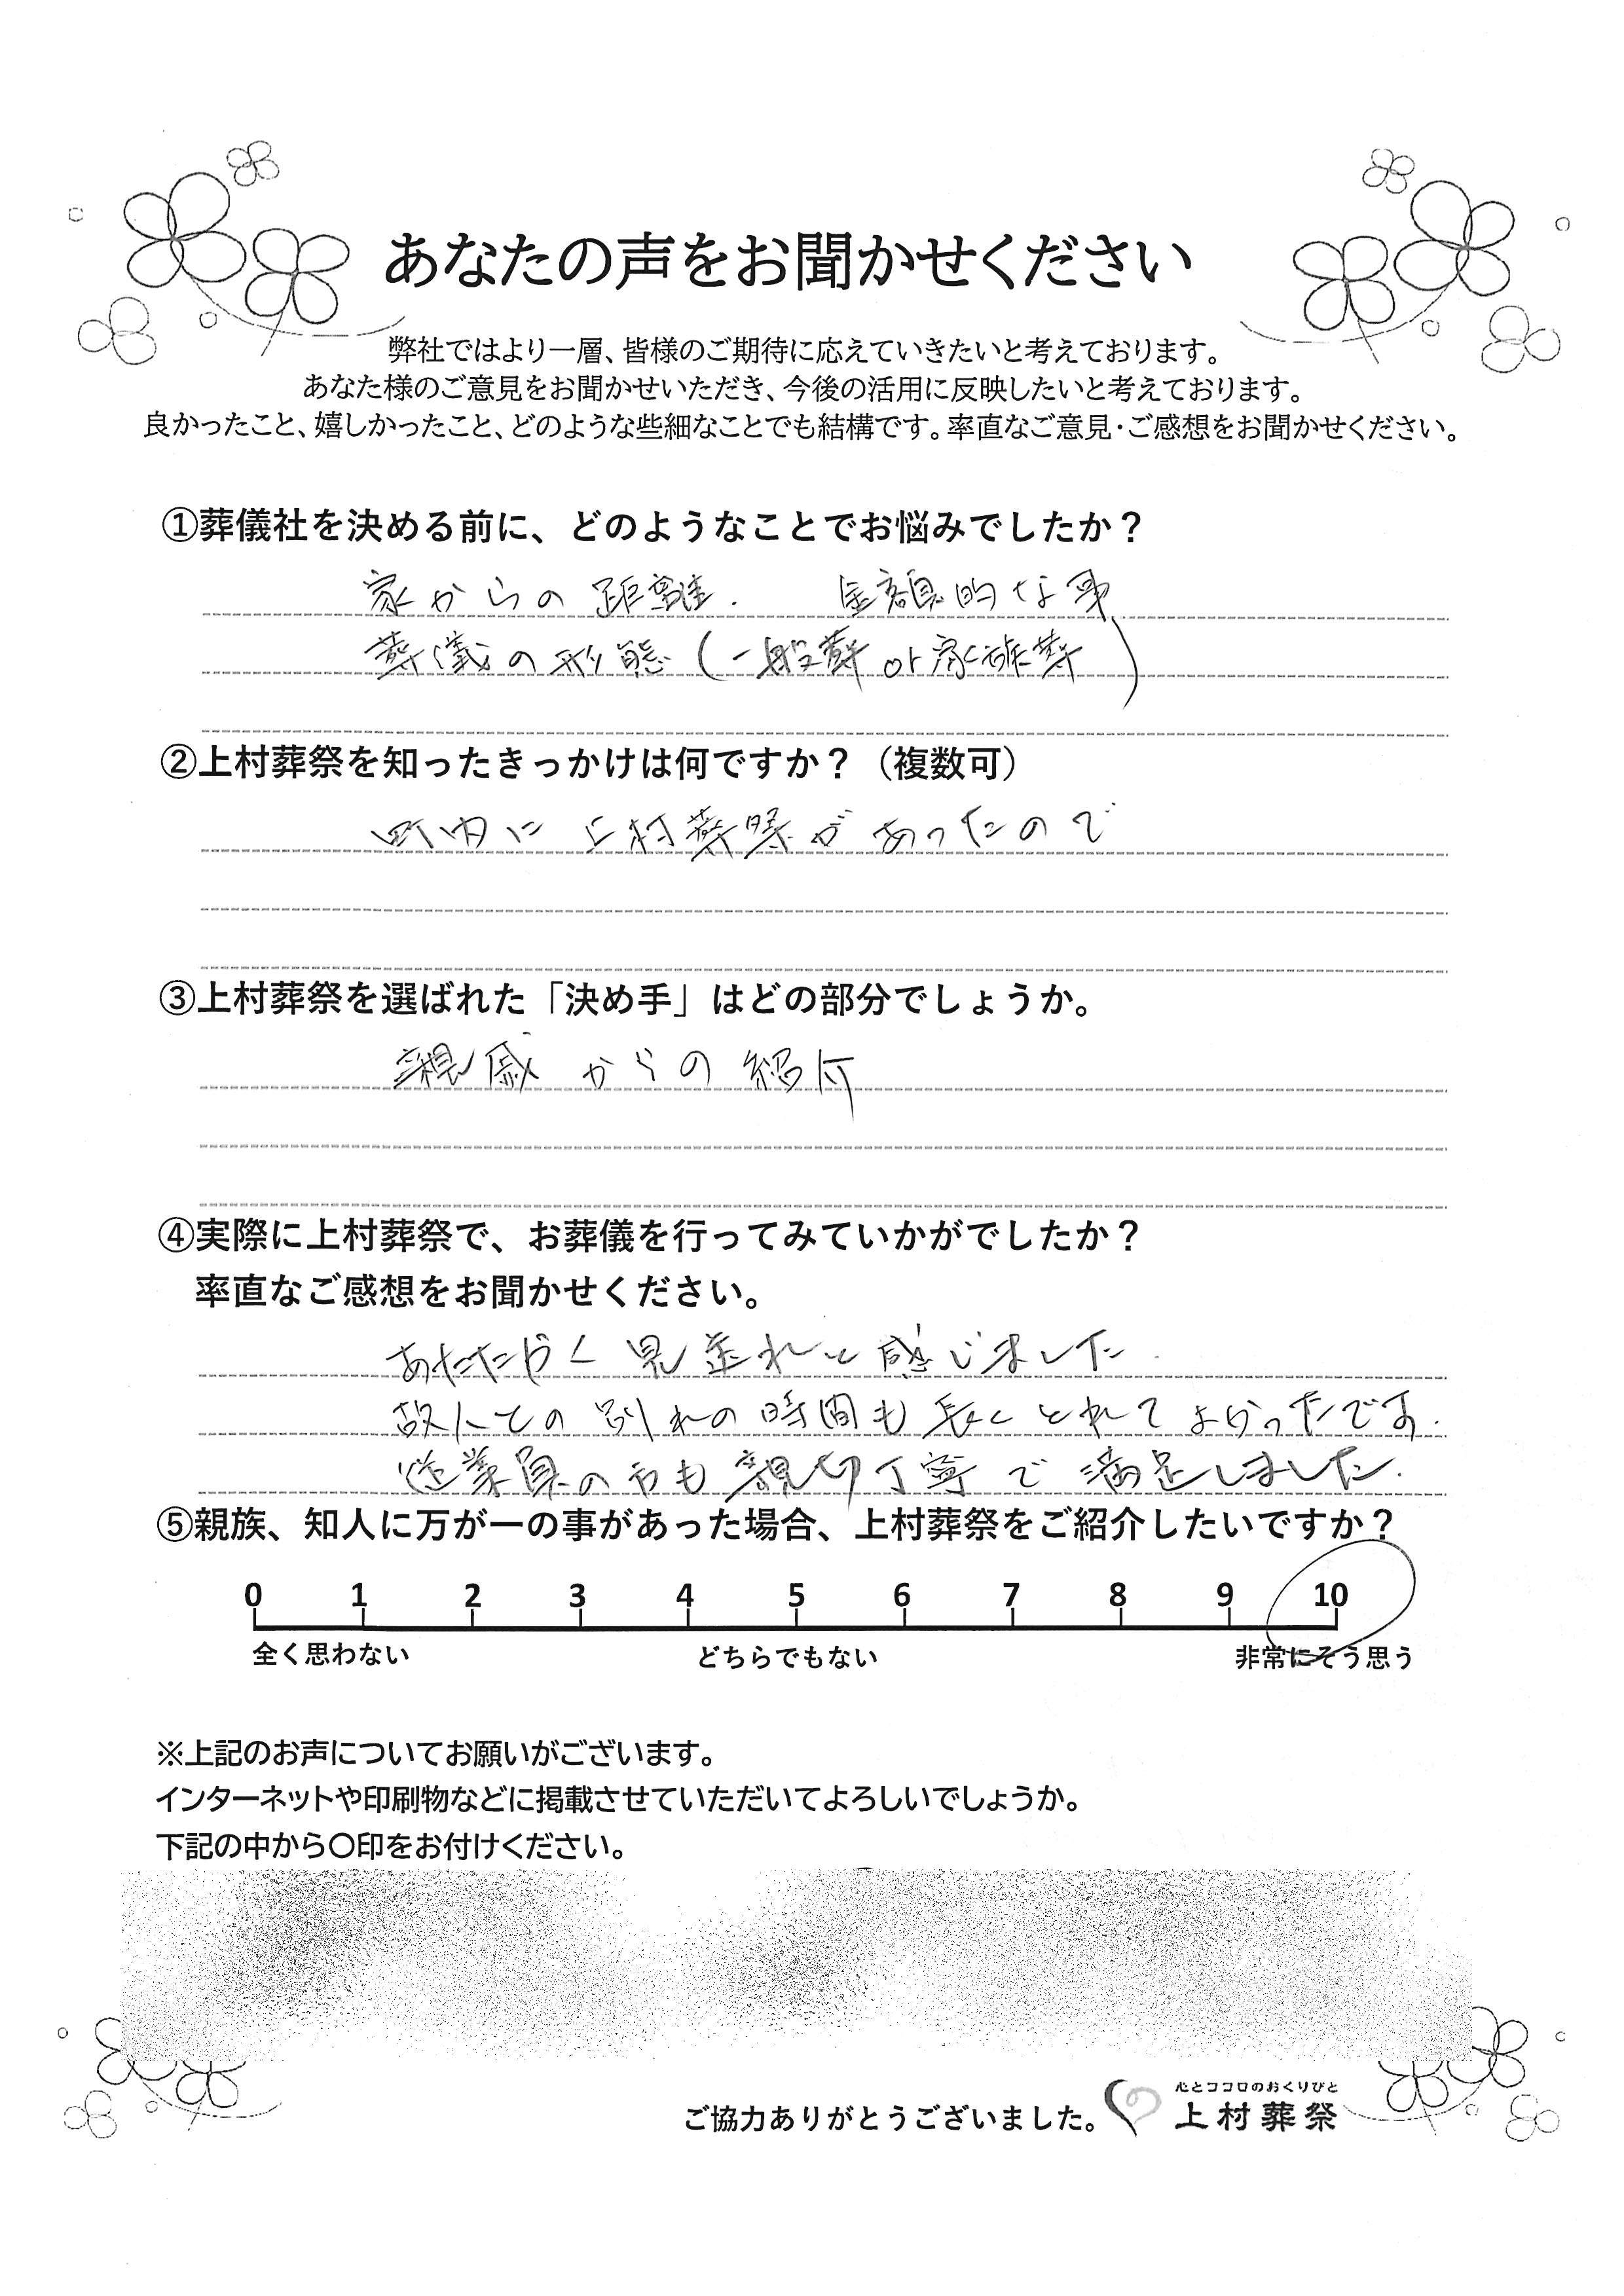 あなたの声をお聞かせください
弊社ではより一層、皆様のご期待に応えていきたいと考えております。
あなた様のご意見をお聞かせいただき、今後の活用に反映したいと考えております。
良かったこと、嬉しかったこと、どのような些細なことでも結構です。率直なご意見・ご感想をお聞かせください。
①葬儀社を決める前に、どのようなことでお悩みでしたか？
家からの距離. 金額的な事
葬儀の形態（一般葬 or 家族葬）
②上村葬祭を知ったきっかけは何ですか？（複数可）
町内に上村葬祭があったので
③上村葬祭を選ばれた「決め手」はどの部分でしょうか。
親戚からの紹介
④実際に上村葬祭で、お葬儀を行ってみていかがでしたか？
率直なご感想をお聞かせください。
あたたかく見送れと感じました.
故人との別れの時間も長くとれてよかったです.
従業員の方も親切丁寧で満足しました.
⑤親族、知人に万が一の事があった場合、上村葬祭をご紹介したいですか？
0 1 2 3 4 5 6 7 8 9 10
全く思わない どちらでもない 非常にそう思う
※上記のお声についてお願いがございます。
インターネットや印刷物などに掲載させていただいてよろしいでしょうか。
下記の中から〇印をお付けください。
心とココロのおくりびと
ご協力ありがとうございました。 上村葬祭